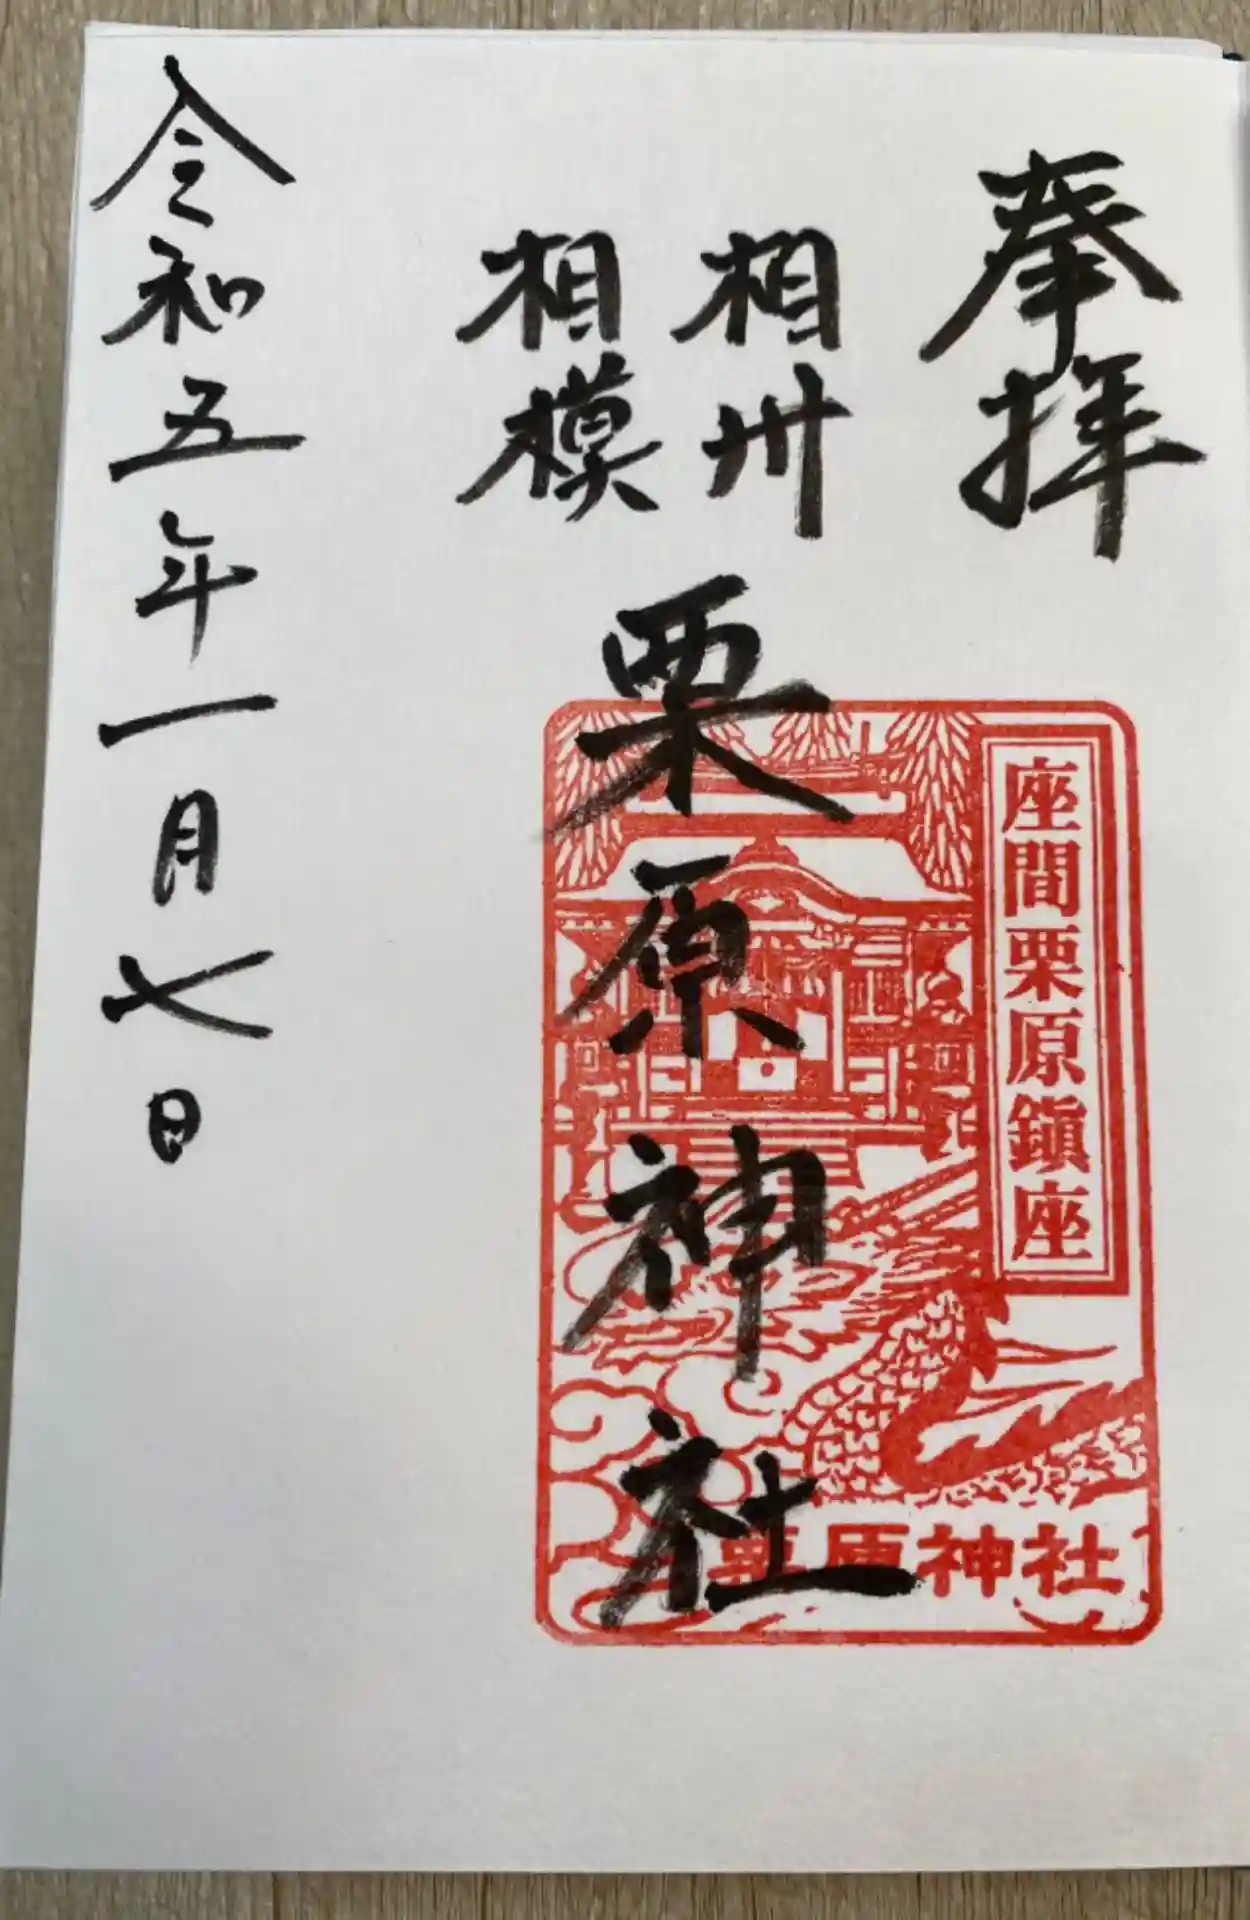 奉拝
相州
相模
栗原神社
座間栗原鎮座
栗原神社
令和五年一月七日